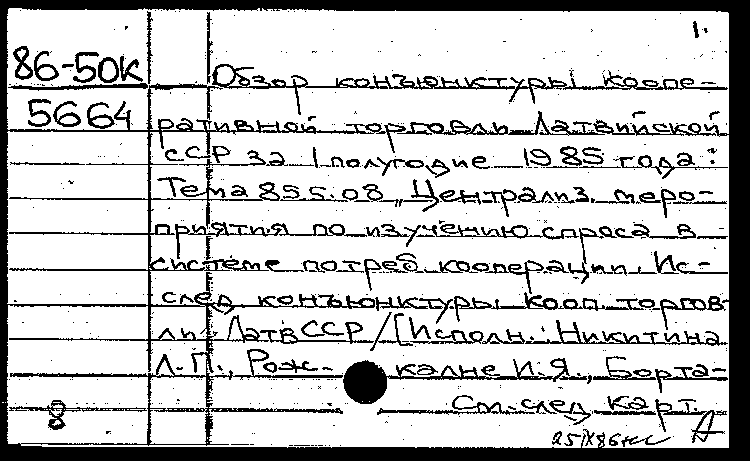 1.
86-50К Обзор конъюнктуры коопе-
5664 ративной торговли Латвийской
ССР за I полугодие 1985 года:
Тема 855.08 „Централиз. меро-
приятия по изучению спроса в
системе потреб. кооперации. Ис-
след. конъюнктуры кооп. торгов-
ли" ЛатвССР / [Исполн.: Никитина
Л.П., Рож- калне И.Я., Борта-
См. след. карт.
8